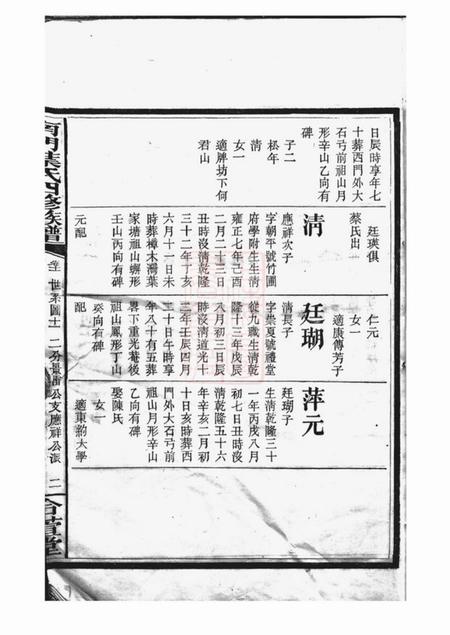 日辰時享年七
十葬西門外大
石弓前祖山月
形辛山乙向有
碑
子二
松年
清
女一
適牌坊下何
君山
清
應祥次子
字朝平號竹圃
府學附生生清
雍正七年己酉
二月二十三日
丑時沒清乾隆
三十二年丁亥
六月十一日未
時葬樟木灣葉
家塘祖山蠏形
壬山丙向有碑
元配
廷瑛俱
蔡氏出
仁元
女一
適庚傳芳子
廷瑚
清長子
字崇夏號禮堂
從九職生清乾
隆十三年戊辰
八月初三日辰
時沒清道光十
二年壬辰四月
三十日午時享
年八十有五葬
畧下重光菴後
祖山鳳形丁山
癸向有碑
配
萍元
廷瑚子
生清乾隆三十
一年丙戌八月
初七日丑時沒
清乾隆五十六
年辛亥二月初
十日亥時葬西
門外大石弓前
祖山月形辛山
乙向有碑
娶陳氏
女一
適東韵太學
南門葉氏四修族譜
世系圖十
二分景南公支應祥公派
二